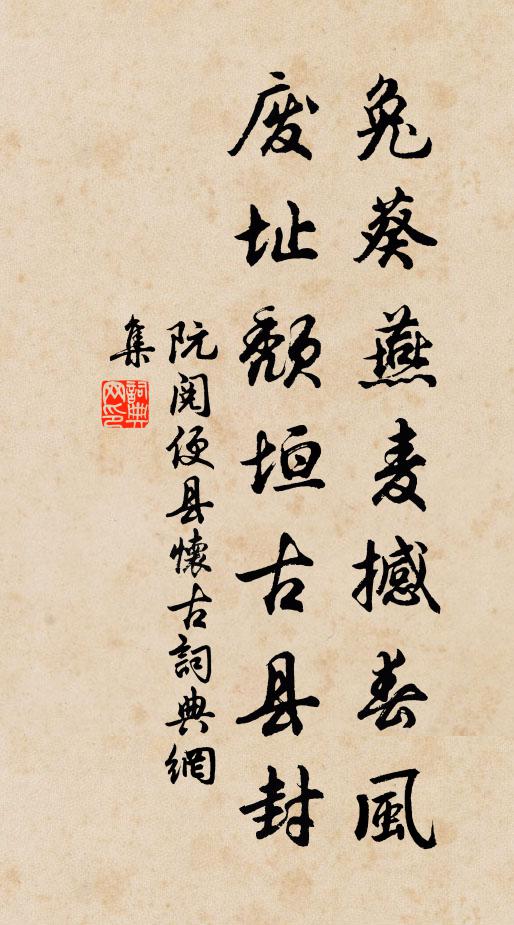 兔葵燕麦撼春風
废址颓垣古县封
阮阅便县懷古詞典網
集
詞典網印